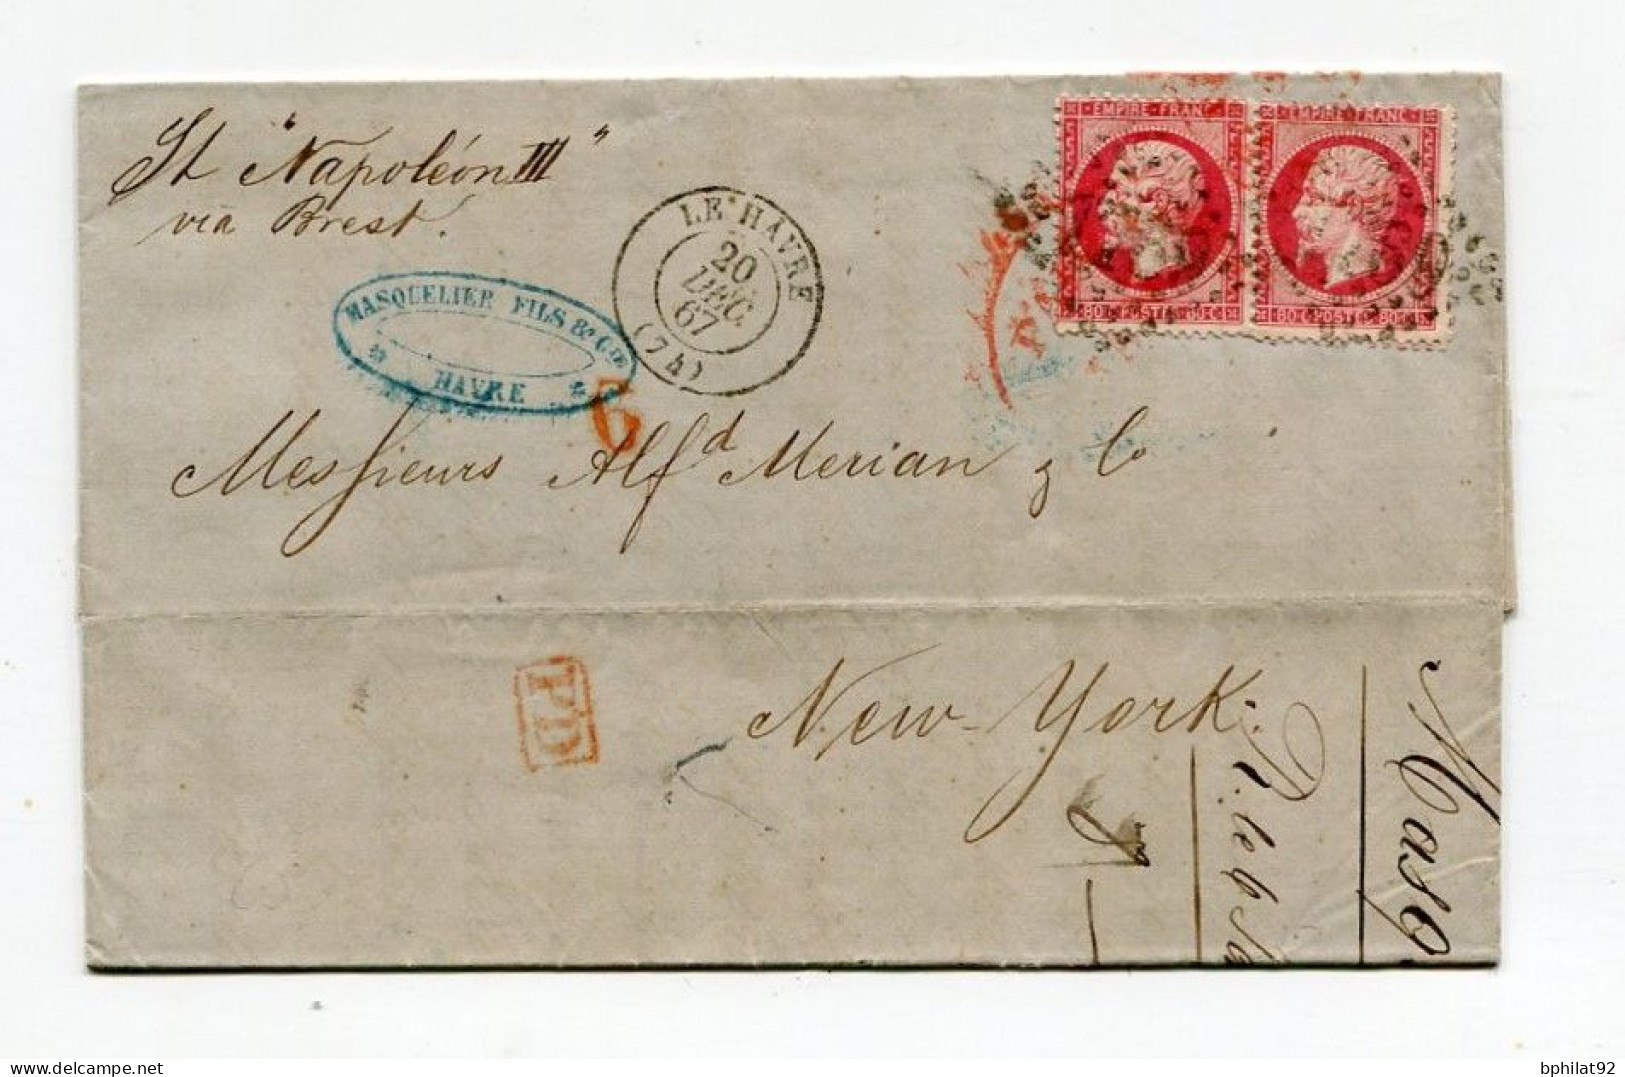 St "Napoléon III"
via Brest.
LE HAVRE
20
DEC.
67
(74)
EMPIRE FRANC
80 C POSTES 80 C
EMPIRE FRANC
80 C POSTES 80 C
MASQUELIER FILS & Cie
HAVRE
6
Messieurs Alfd Merian & Co
New-York.
PD
bphilat92